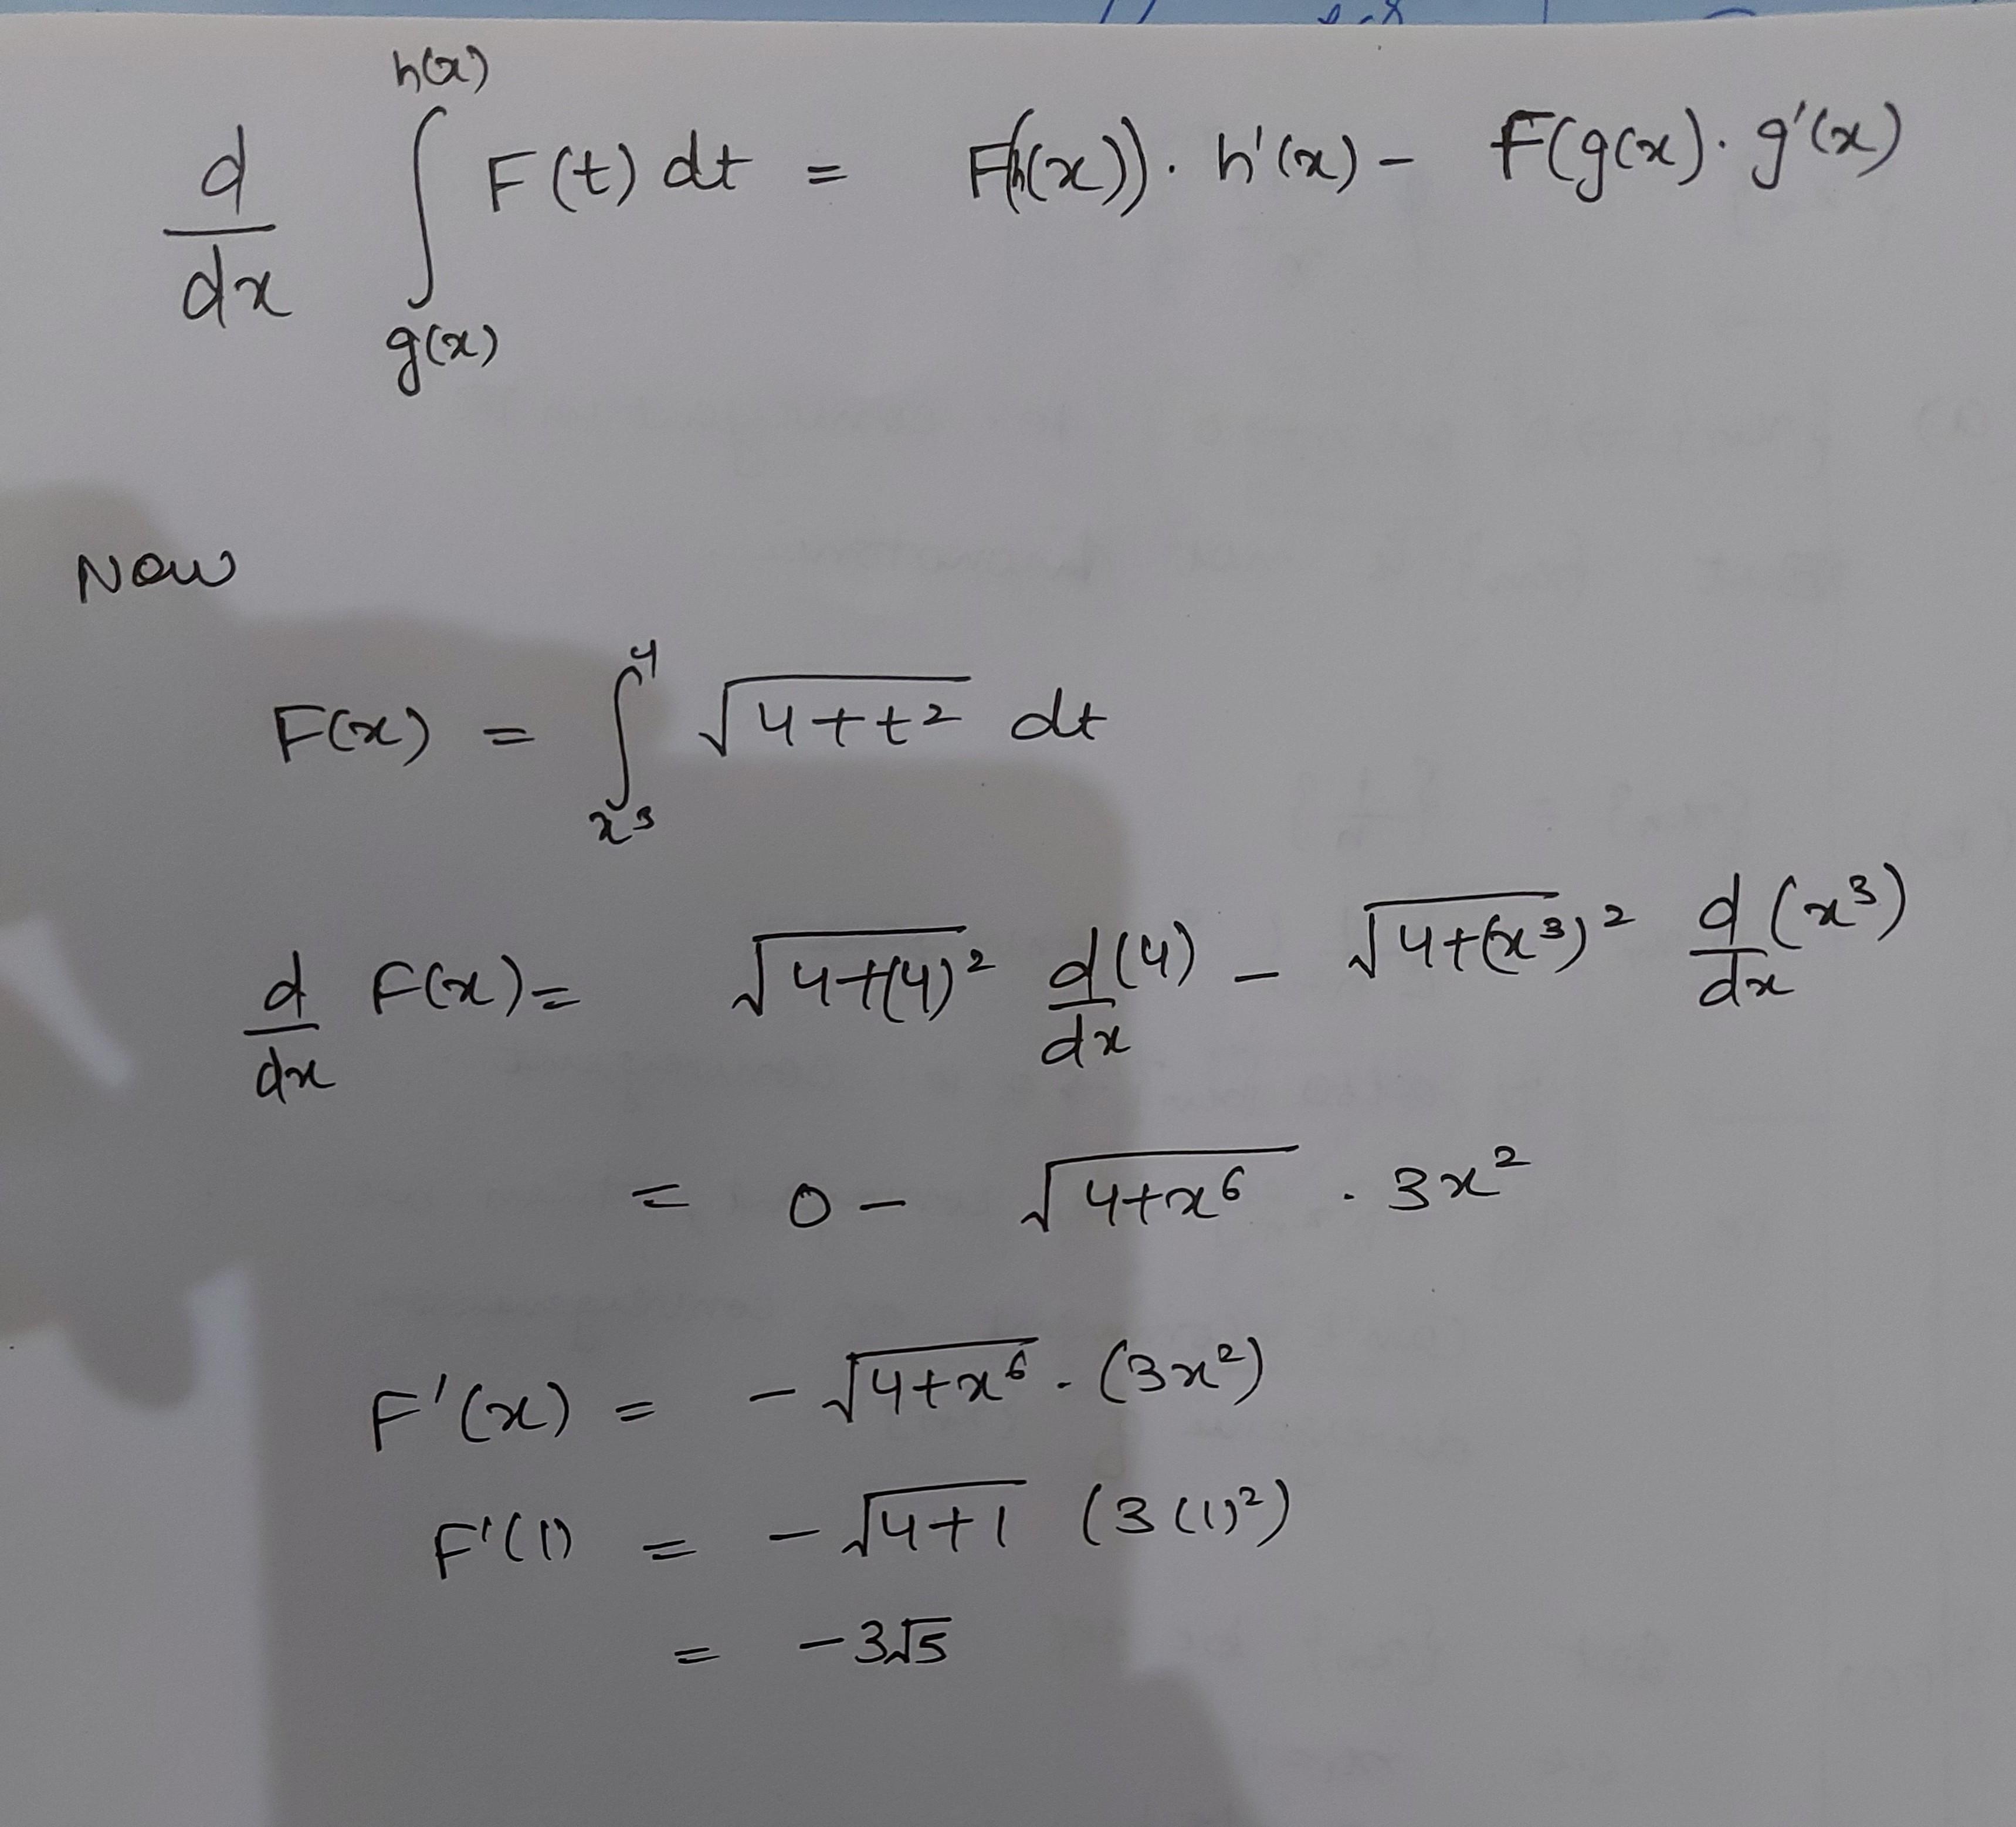 d/dx ∫_{g(x)}^{h(x)} F(t) dt = F(h(x)). h'(x) - F(g(x). g'(x)
Now
F(x) = ∫_{x^3}^{4} √(4+t^2) dt
d/dx F(x) = √(4+(4)^2) d/dx (4) - √(4+(x^3)^2) d/dx (x^3)
= 0 - √(4+x^6) . 3x^2
F'(x) = - √(4+x^6) . (3x^2)
F'(1) = - √(4+1) (3(1)^2)
= -3√5